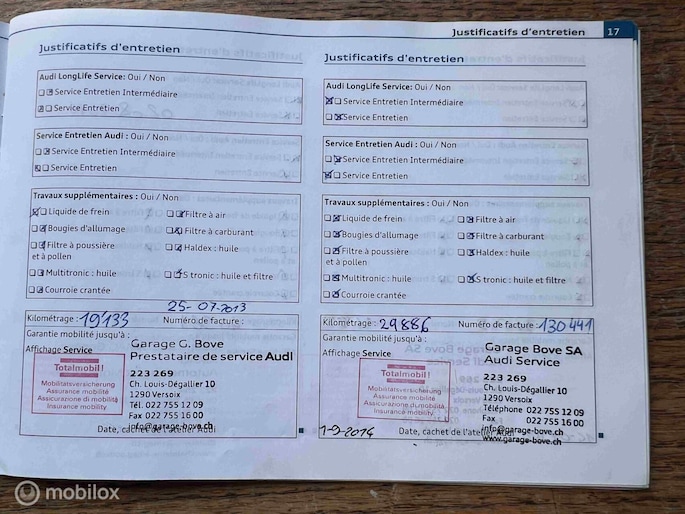 Justificatifs d'entretien 17
Justificatifs d'entretien
Audi LongLife Service: Oui / Non
Service Entretien Intermédiaire
Service Entretien
Service Entretien Audi : Oui / Non
Service Entretien Intermédiaire
Service Entretien
Travaux supplémentaires : Oui / Non
Liquide de frein Filtre à air
Bougies d'allumage Filtre à carburant
Filtre à poussière Haldex : huile
et à pollen
Multitronic : huile S tronic : huile et filtre
Courroie crantée
25-07-2013
Kilométrage : 19133 Numéro de facture :
Garantie mobilité jusqu'à :
Affichage Service
Totalmobil!
Mobilitätsversicherung
Assurance mobilité
Assicurazione di mobilità
Insurance mobility
Garage G. Bove
Prestataire de service Audi
223 269
Ch. Louis-Dégallier 10
1290 Versoix
Tél. 022 755 12 09
Fax 022 755 16 00
info@garage-bove.ch
Date, cachet de l'atelier Audi
Justificatifs d'entretien
Audi LongLife Service: Oui / Non
Service Entretien Intermédiaire
Service Entretien
Service Entretien Audi : Oui / Non
Service Entretien Intermédiaire
Service Entretien
Travaux supplémentaires : Oui / Non
Liquide de frein Filtre à air
Bougies d'allumage Filtre à carburant
Filtre à poussière Haldex : huile
et à pollen
Multitronic : huile S tronic : huile et filtre
Courroie crantée
Kilométrage : 29886 Numéro de facture : 130441
Garantie mobilité jusqu'à :
Affichage Service
Totalmobil!
Mobilitätsversicherung
Assurance mobilité
Assicurazione di mobilità
Insurance mobility
Garage Bove SA
Audi Service
223 269
Ch. Louis-Dégallier 10
1290 Versoix
Téléphone 022 755 12 09
Fax 022 755 16 00
info@garage-bove.ch
www.garage-bove.ch
1-9-2014 Date, cachet de l'atelier Audi
mobilox